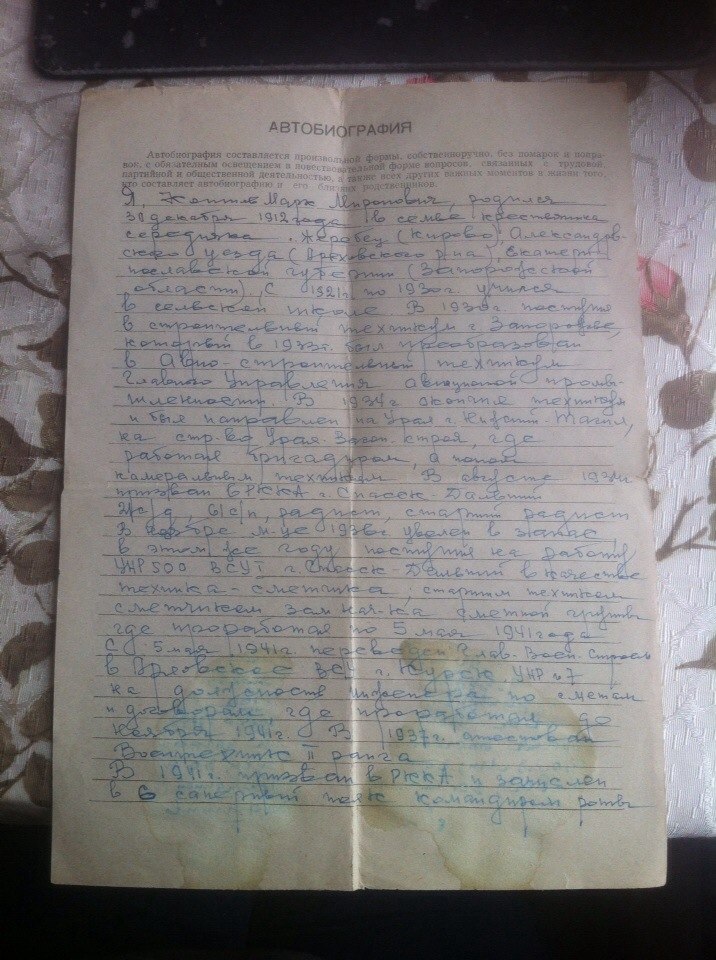 АВТОБИОГРАФИЯ
Автобиография составляется произвольной формы, собственноручно, без помарок и попра-
вок, с обязательным освещением в повествовательной форме вопросов, связанных с трудовой,
партийной и общественной деятельностью, а также всех других важных моментов в жизни того,
кто составляет автобиографию и его близких родственников.
Я, Марк Миронович, родился
30 декабря 1912 года в семье крестьянина
середняка с. Жеребец (Кирово), Александров-
ского уезда (Ореховского р-на), Екатери-
нославской губернии (Запорожской
области). С 1921г. по 1930г. учился
в сельской школе. В 1930г. поступил
в строительный техникум г. Запорожье,
который в 1933г. был преобразован
в Авио-строительный техникум
Главного Управления авиационой промы-
шленности. В 1934г. окончил техникум
и был направлен на Урал г. Нижний-Тагил,
на стр-во Урал. Вагон. строя, где
работал бригадиром, а потом
камеральным техником. В августе 1934г.
призван в РККА г. Спасск-Дальний
2/с/д, 6/с/п, радист, старший радист
В м-це 1936г. уволен в запас,
в этом же году поступил на работу
УНР 500 ВСУ г. Спасск-Дальний в качестве
техника-сметчика, старшим техником
сметчиком зам. нач-ка сметной группы
где проработал по 5 мая 1941 года
С 5 мая 1941г. переведен Глав. Воен. Строем
в Орловское ВСУ г. Курск, УНР №7
на должность инженера по сметам
и договорам, где проработал до
ноября 1941г. В 1937г. аттестован
Воентехник II ранга
В 1941г. призван в РККА и зачислен
в 6 саперный полк командиром роты